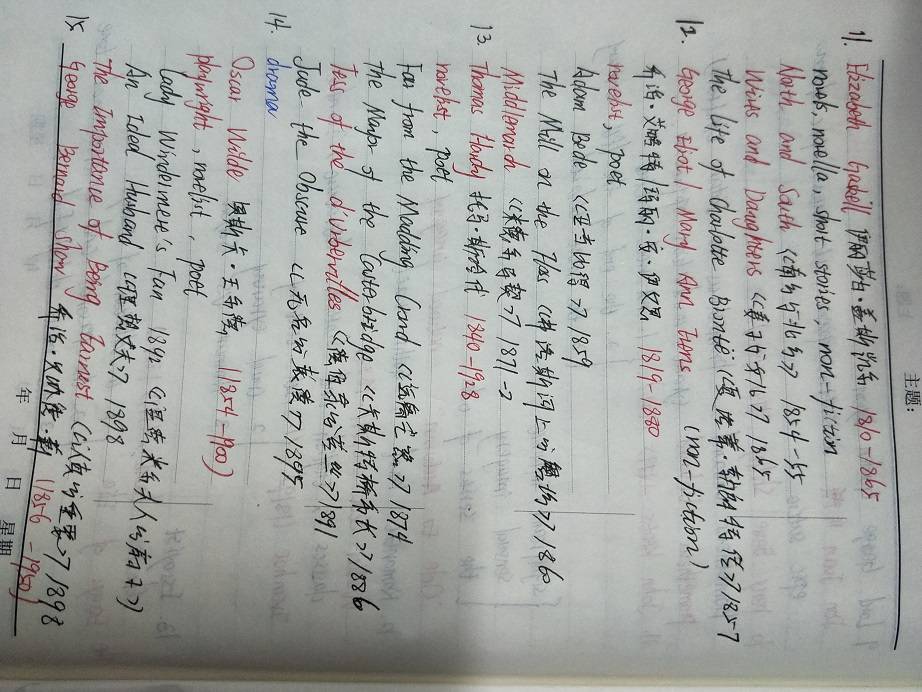 主题:
11. Elizabeth Gaskell 伊丽莎白·盖斯凯尔 1810-1865
novels, novella, short stories, non-fiction
North and South 《南方与北方》 1854-55
Wives and Daughters 《妻子与女儿》 1865
The Life of Charlotte Brontë 《夏洛蒂·勃朗特传》 1857
12. George Eliot / Mary Ann Evans (non-fiction)
乔治·艾略特 玛丽·安·伊文思 1819-1880
novelist, poet
Adam Bede 《亚当比德》 1859
The Mill on the Floss 《弗洛斯河上的磨坊》 1860
Middlemarch 1871-2
13. Thomas Hardy 托马斯·哈代 1840-1928
novelist, poet
Far from the Madding Crowd 《远离尘嚣》 1874
The Mayor of the Casterbridge 《卡斯特桥市长》 1886
Tess of the d'Urbervilles 《德伯家的苔丝》 1891
Jude the Obscure 《无名的裘德》 1895
14. drama
Oscar Wilde 奥斯卡·王尔德 (1854-1900)
playwright, novelist, poet
Lady Windermere's Fan 1892 《温德米尔夫人的扇子》
An Ideal Husband 《理想丈夫》 1898
The Importance of Being Earnest 《认真的重要》 1898
15. George Bernard Shaw 乔治·伯纳德·萧 (1856-1950)
年 月 日 星期